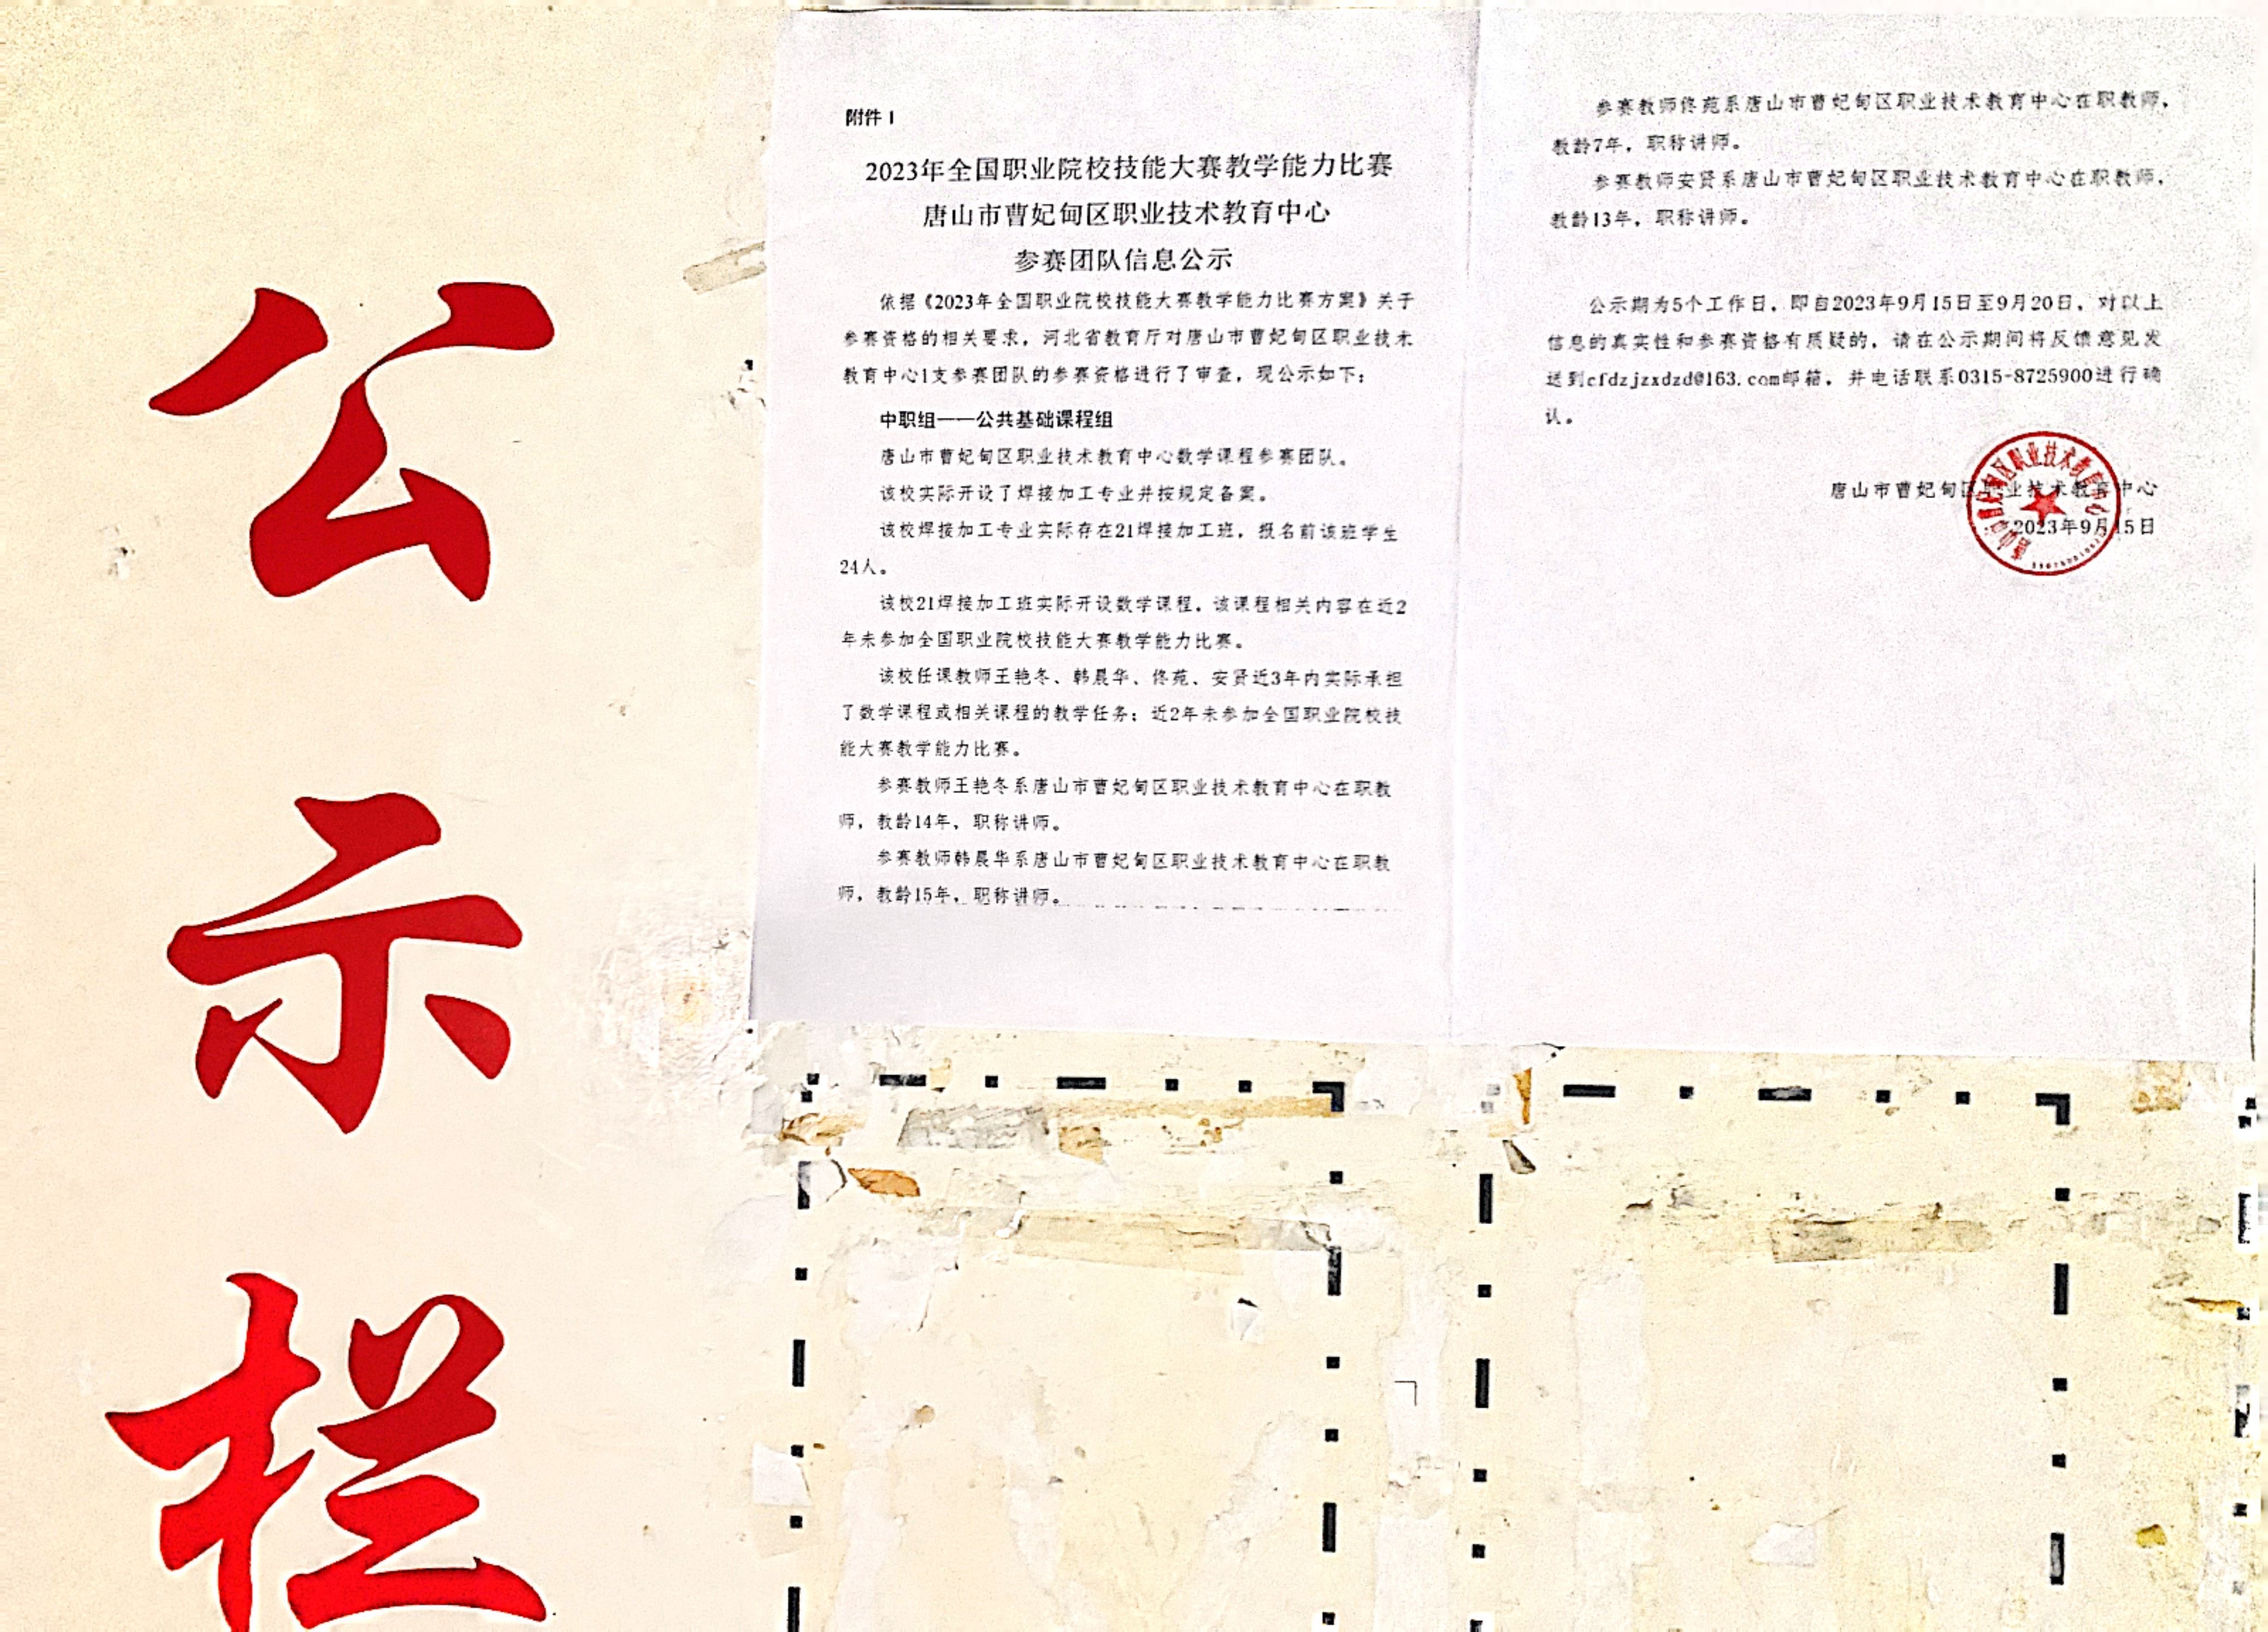 公
示
栏
附件1
2023年全国职业院校技能大赛教学能力比赛
唐山市曹妃甸区职业技术教育中心
参赛团队信息公示
依据《2023年全国职业院校技能大赛教学能力比赛方案》关于
参赛资格的相关要求，河北省教育厅对唐山市曹妃甸区职业技术
教育中心1支参赛团队的参赛资格进行了审查，现公示如下：
中职组——公共基础课程组
唐山市曹妃甸区职业技术教育中心数学课程参赛团队。
该校实际开设了焊接加工专业并按规定备案。
该校焊接加工专业实际存在21焊接加工班，报名前该班学生
24人。
该校21焊接加工班实际开设数学课程，该课程相关内容在近2
年未参加全国职业院校技能大赛教学能力比赛。
该校任课教师王艳冬、韩晨华、佟苑、安贤近3年内实际承担
了数学课程或相关课程的教学任务；近2年未参加全国职业院校技
能大赛教学能力比赛。
参赛教师王艳冬系唐山市曹妃甸区职业技术教育中心在职教
师，教龄14年，职称讲师。
参赛教师韩晨华系唐山市曹妃甸区职业技术教育中心在职教
师，教龄15年，职称讲师。
参赛教师佟苑系唐山市曹妃甸区职业技术教育中心在职教师，
教龄7年，职称讲师。
参赛教师安贤系唐山市曹妃甸区职业技术教育中心在职教师，
教龄13年，职称讲师。
公示期为5个工作日，即自2023年9月15日至9月20日，对以上
信息的真实性和参赛资格有质疑的，请在公示期间将反馈意见发
送到cfdzjzxdzd@163.com邮箱，并电话联系0315-8725900进行确
认。
唐山市曹妃甸区职业技术教育中心
2023年9月15日